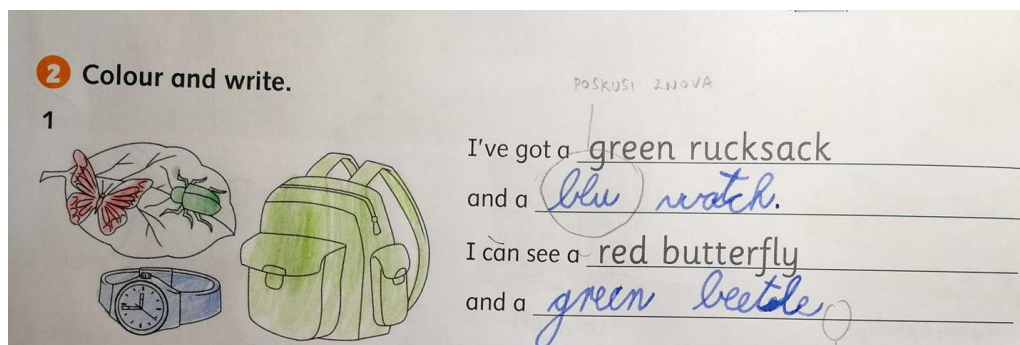 2 Colour and write.
POSKUSI ZNOVA
1
I've got a green rucksack
and a blu watch.
I can see a red butterfly
and a green beetle